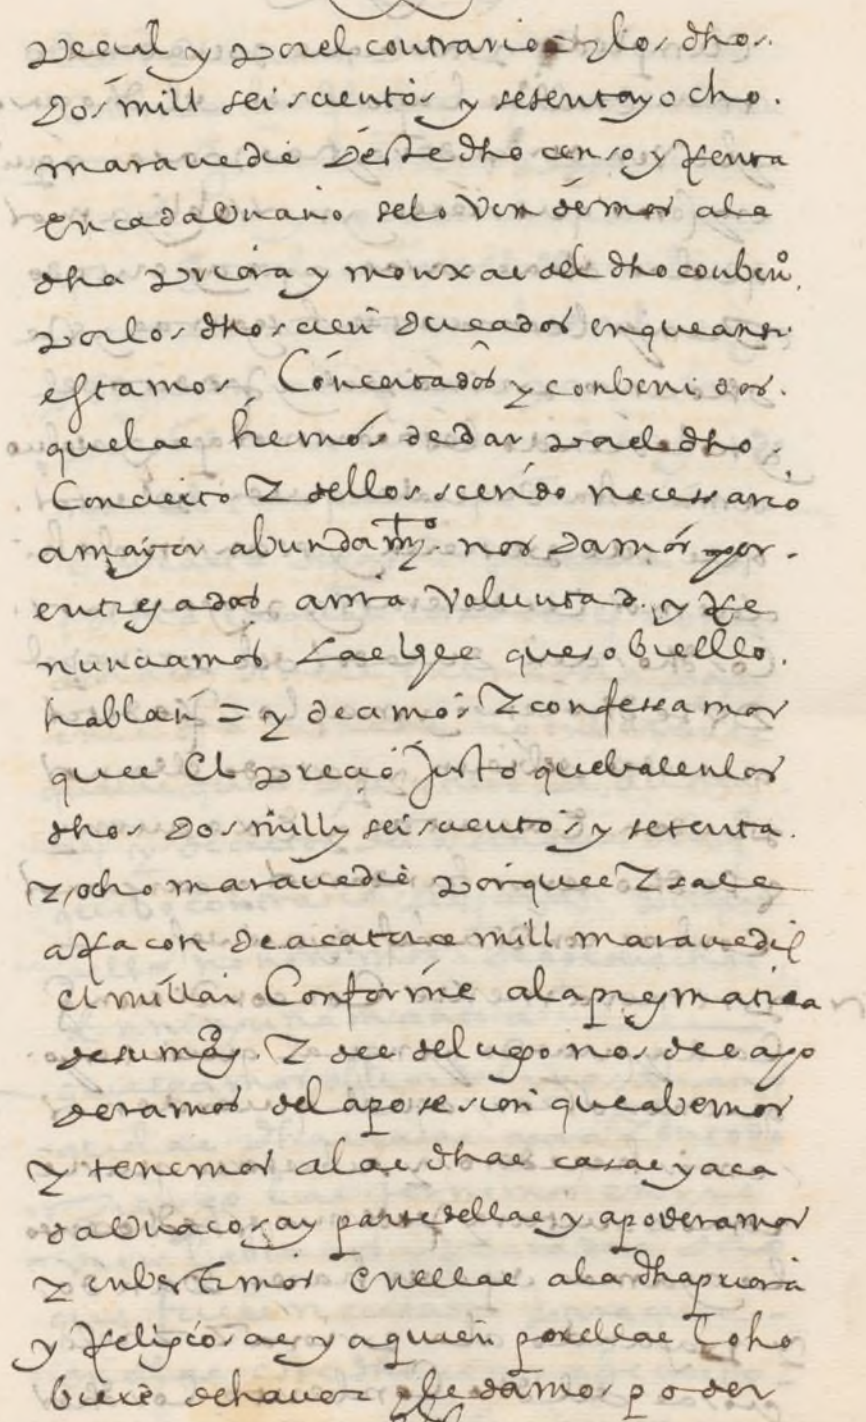 pecial y por el contrario y los dhos
dos mill seiscientos y setenta y ocho
maravedis deste dho censo y Renta
en cada Vn año se lo Vendemos a la
dha priora y monxas del dho conbento
por los dhos cien ducados en que
estamos Concertados y conbenidos
que las hemos de dar por el dho
Concierto Z dellos sciendo necessario
a mayor abundamyto nos damos por
entregados a nra Voluntad y Re
nunciamos Las leyes que sobrello
hablan = y decimos Z confessamos
que es El precio Justo que balen los
dhos dos mill y seiscientos y setenta
Z ocho maravedis porque es Z sale
a Raçon de a catorce mill maravedis
El millar Conforme a la pregmatica
de su mag Z desde luego nos desapo
deramos de la posesion que abemos
y tenemos a las dhas casas y a ca
da Vna cosa y parte dellas y apoderamos
Z enbestimos En ellas a la dha priora
y Religiosas y a quien por ellas lo ho
biere de haver y le damos poder